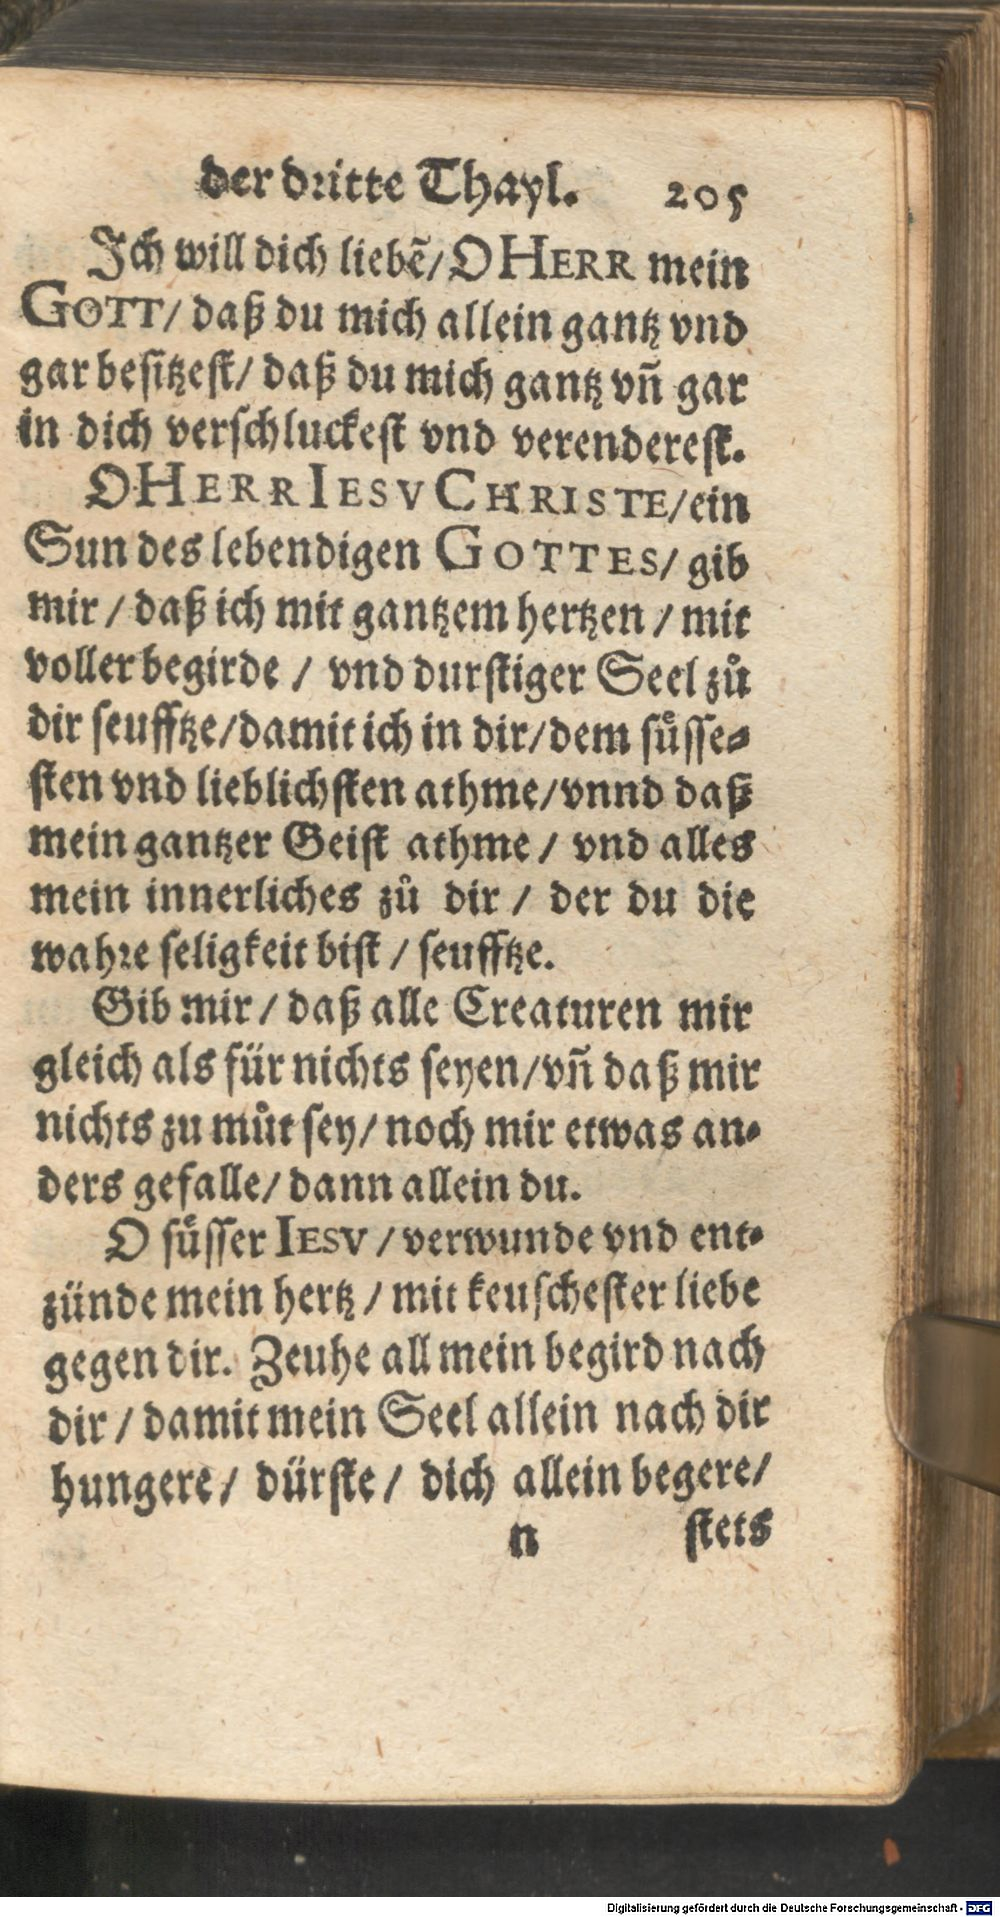 der dritte Thayl. 205
Ich will dich liebẽ/ O HERR mein
GOTT/ daß du mich allein gantz vnd
gar besitzest/ daß du mich gantz vñ gar
in dich verschluckest vnd verenderest.
O HERR IESV CHRISTE/ ein
Sun des lebendigen GOTTES/ gib
mir / daß ich mit gantzem hertzen / mit
voller begirde / vnd durstiger Seel zů
dir seufftze/ damit ich in dir/ dem sůsse-
sten vnd lieblichsten athme/ vnnd daß
mein gantzer Geist athme / vnd alles
mein innerliches zů dir / der du die
wahre seligkeit bist / seufftze.
Gib mir / daß alle Creaturen mir
gleich als für nichts seyen/ vñ daß mir
nichts zu můt sey/ noch mir etwas an-
ders gefalle/ dann allein du.
O sůsser IESV / verwunde vnd ent-
zünde mein hertz / mit keuschester liebe
gegen dir. Zeuhe all mein begird nach
dir / damit mein Seel allein nach dir
hungere/ dürste/ dich allein begere/
n stets
Digitalisierung gefördert durch die Deutsche Forschungsgemeinschaft - DFG